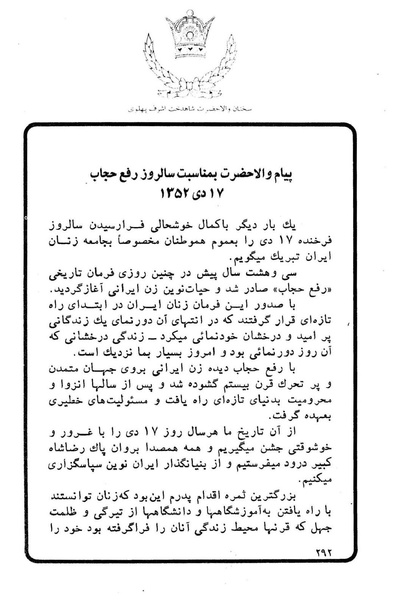 سخنان والاحضرت شاهدخت اشرف پهلوی
پیام والاحضرت بمناسبت سالروز رفع حجاب
۱۷ دی ۱۳۵۲
یك بار دیگر باکمال خوشحالی فرارسیدن سالروز
فرخنده ۱۷ دی را بعموم هموطنان مخصوصاً بجامعه زنان
ایران تبریك میگویم.
سی وهشت سال پیش در چنین روزی فرمان تاریخی
«رفع حجاب» صادر شد و حیات‌نوین زن ایرانی آغازگردید.
با صدور این فرمان زنان ایران در ابتدای راه
تازه‌ای قرار گرفتند که در انتهای آن دورنمای یك زندگانی
پر امید و درخشان خودنمائی میکرد ـ زندگی درخشانی که
آن روز دورنمائی بود و امروز بسیار بما نزدیك است.
با رفع حجاب دیده زن ایرانی بروی جهان متمدن
و پر تحرك قرن بیستم گشوده شد و پس از سالها انزوا و
محرومیت بدنیای تازه‌ای راه یافت و مسئولیت‌های خطیری
بعهده گرفت.
از آن تاریخ ما هرسال روز ۱۷ دی را با غرور و
خوشوقتی جشن میگیریم و همه همصدا بروان پاك رضاشاه
کبیر درود میفرستیم و از بنیانگذار ایران نوین سپاسگزاری
میکنیم.
بزرگترین ثمره اقدام پدرم این‌بود که‌زنان توانستند
با راه یافتن به‌آموزشگاهها و دانشگاهها از تیرگی و ظلمت
جهل که قرنها محیط زندگی آنان را فراگرفته بود خود را
۲۹۲